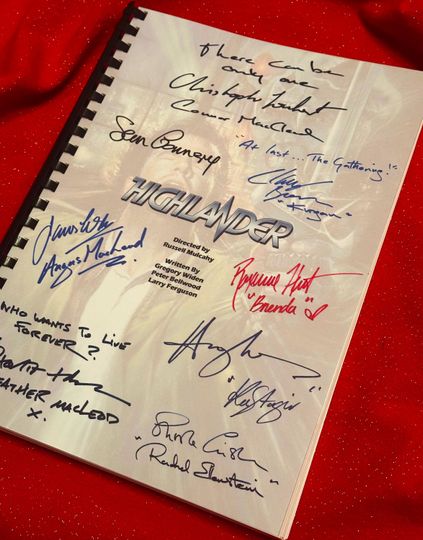 There can be
only one
Christopher Lambert
Connor MacLeod
Sean Connery
"At last... The Gathering!"
Clancy
Brown
"Kurgan"
HIGHLANDER
James
Angus MacLeod
Directed by
Russell Mulcahy
Written By
Gregory Widen
Peter Bellwood
Larry Ferguson
Roxanne Hart
"Brenda"
WHO WANTS TO LIVE
FOREVER?
HEATHER MACLEOD
X.
"Rachel Ellenstein"